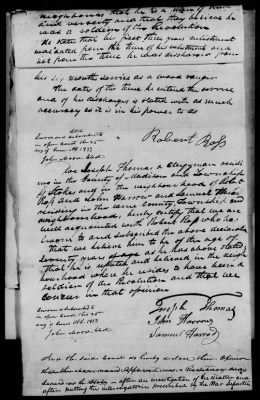 neighbours that he is a man of truth
and veracity and that they believe he
was a soldier of the Revolution
He states that his first three years enlistment
was dated from the time of his enlistment and
not from the time he was discharged from
his six months service as a wood ranger
The date of the time he entered the service
and of his discharges is stated with as much
accuracy as it is in his power to do
Sworn and subscribed to
in open court this 25
day of June A.D. 1833
John Moore Clerk
Robert Ross
We Joseph Thomas a Clergyman residing
in the County of Madison and Township
of Stokes and in the neighbourhood of Robert
Ross and John Harrod and Samuel Harrod
residing in the same County, Township and
neighbourhood, hereby certify that we are
well acquainted with Robert Ross who has
sworn to and subscribed the above declaration
that we believe him to be of the age of
seventy years of age as he has above stated
that he is reputed and believed in the neighbourhood
where he resides to have been a
soldier of the Revolution and that we
concur in that opinion
Sworn & subscribed to
in open court this 25
day of June A.D. 1833
John Moore Clerk
Joseph Thomas
John Harrod
Samuel Harrod
And the said court do hereby declare their opinion
that the above named applicant was a Revolutionary
served as he states after an investigation of the matter and
after putting the interrogatories prescribed by the War Department